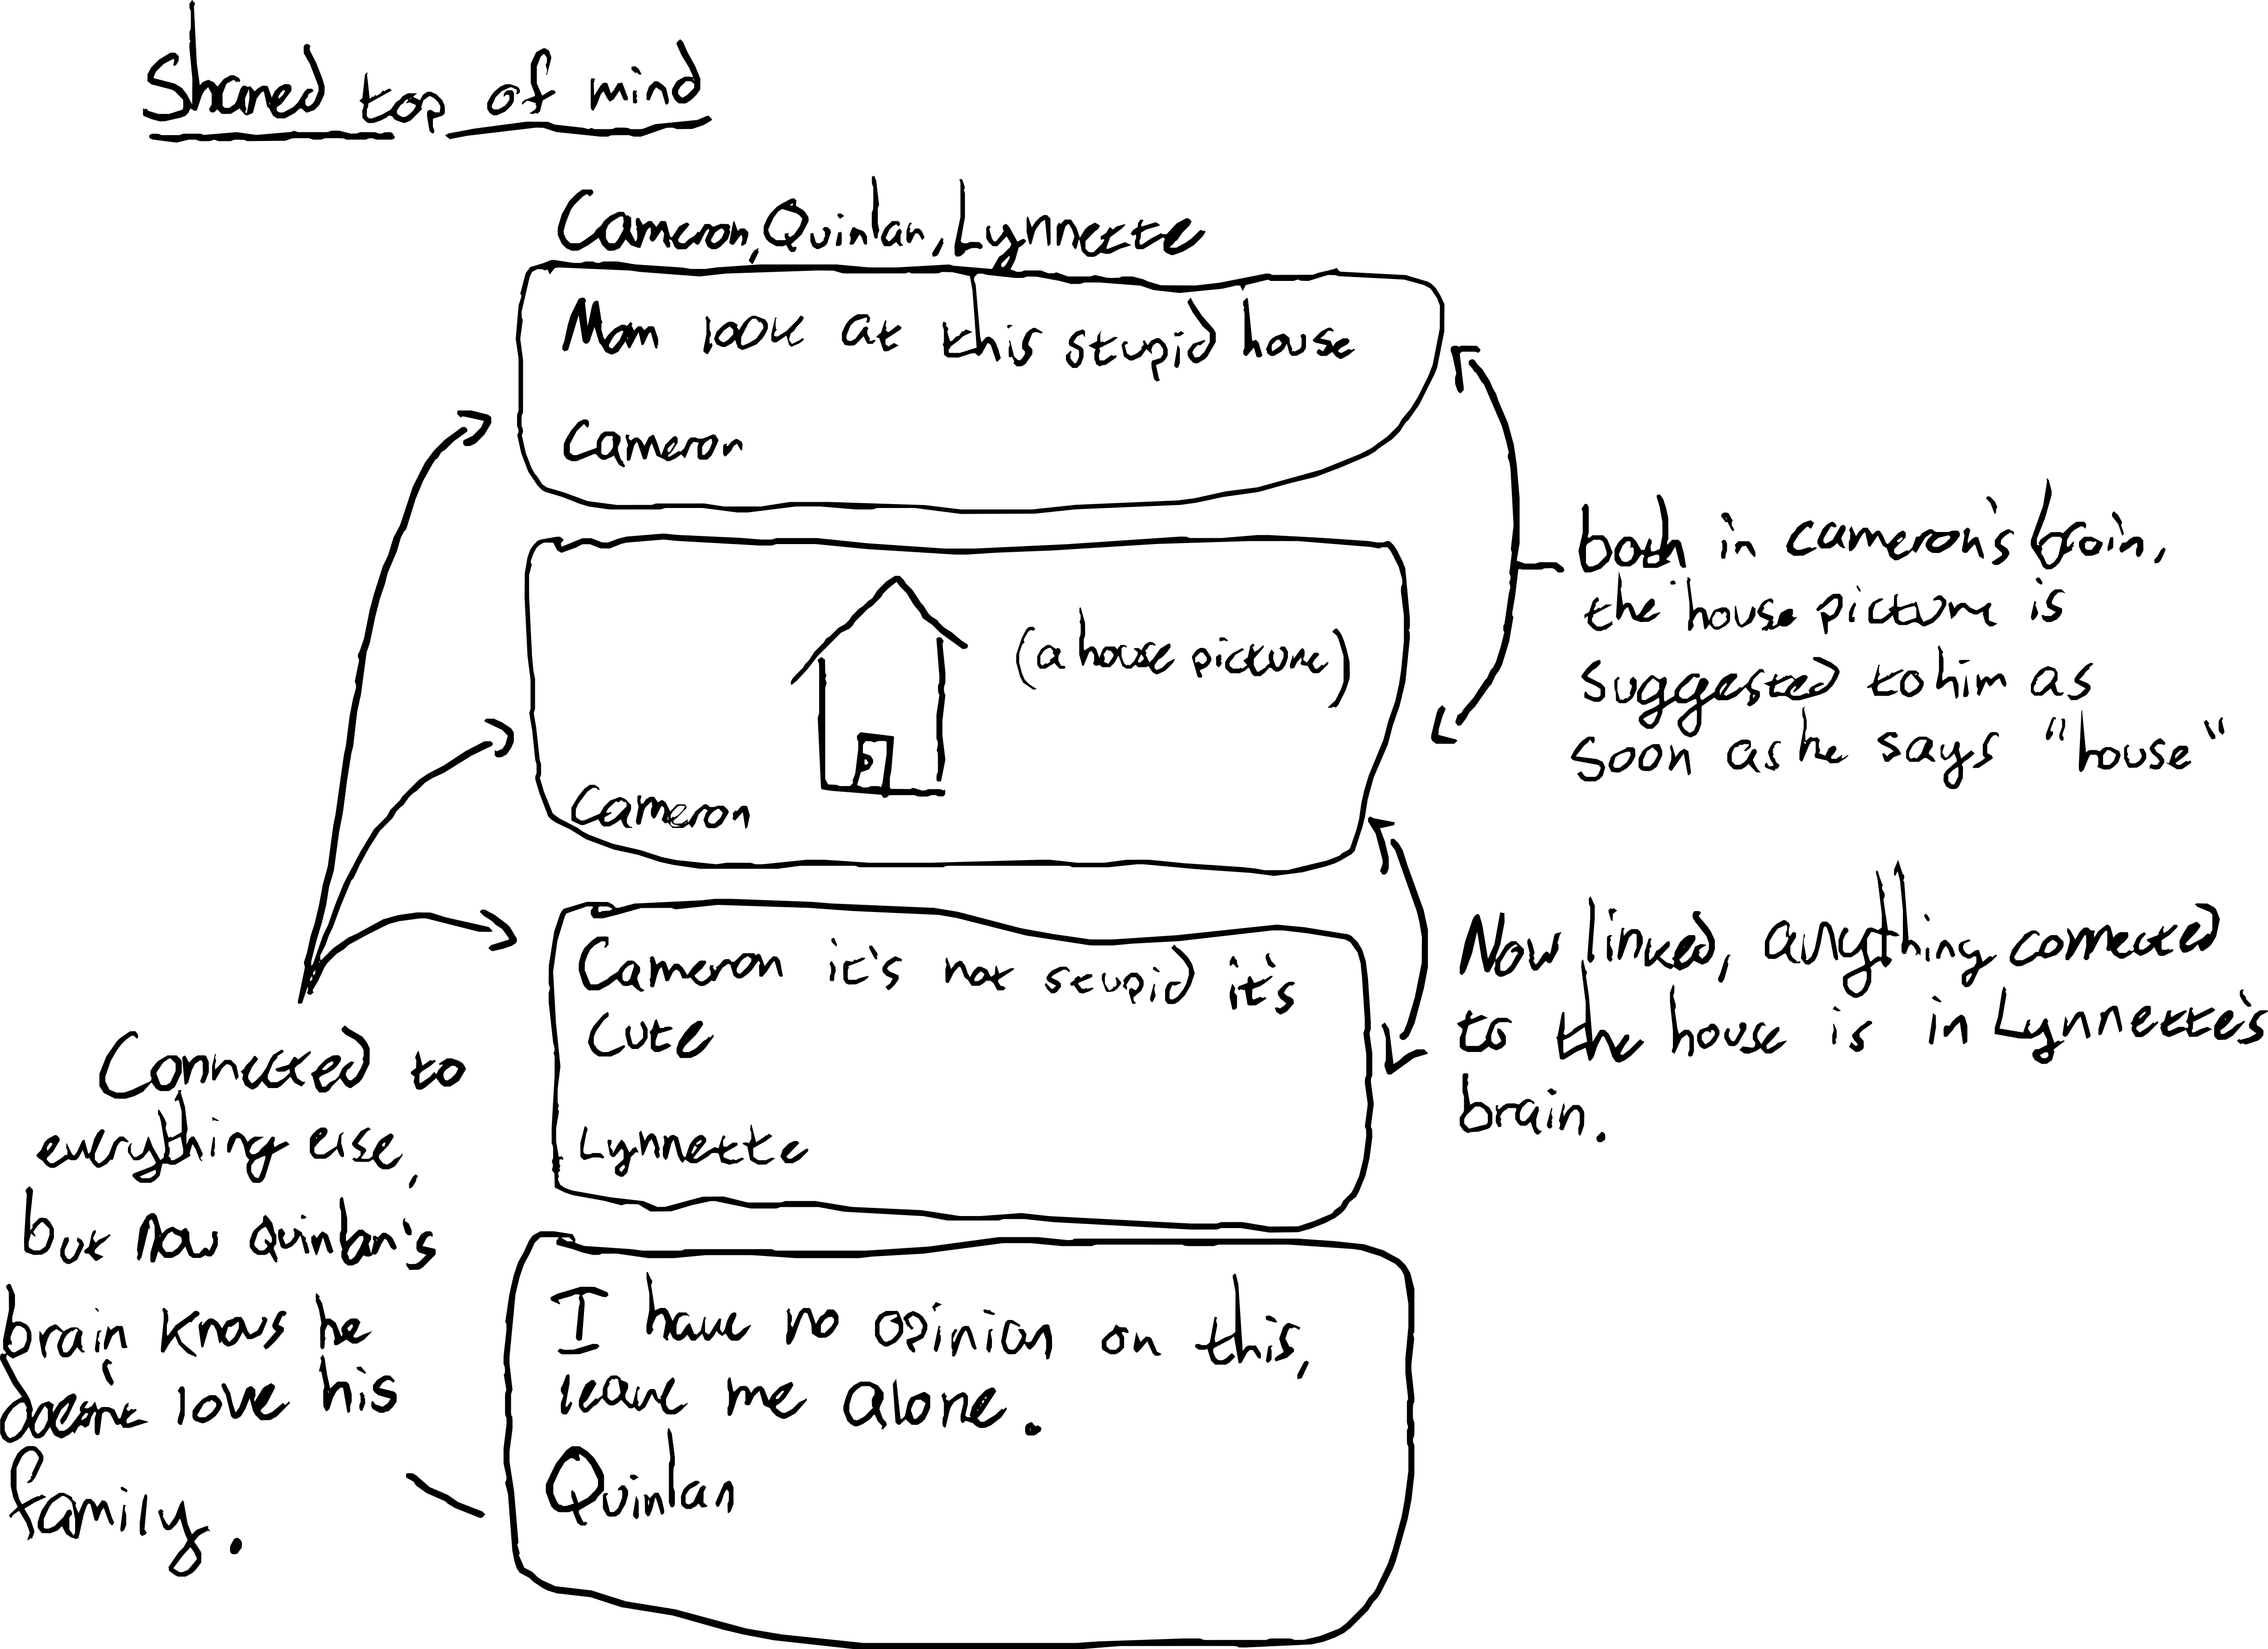 Shared top of mind
Cameron, Quinlan, Lynnette
Mom look at this stupid house
Cameron
(a house picture)
Cameron
Cameron it's not stupid it's
Cute
Lynnette
I have no opinion on this,
leave me alone.
Quinlan
both in cameron's brain,
the house picture is
suggested to him as
soon as he says "house"
Now linked, anything connected
to the house is in Lynnette's
brain.
Connected to
everything else,
but now quinlan's
brain knows he
doesn't love his
family.